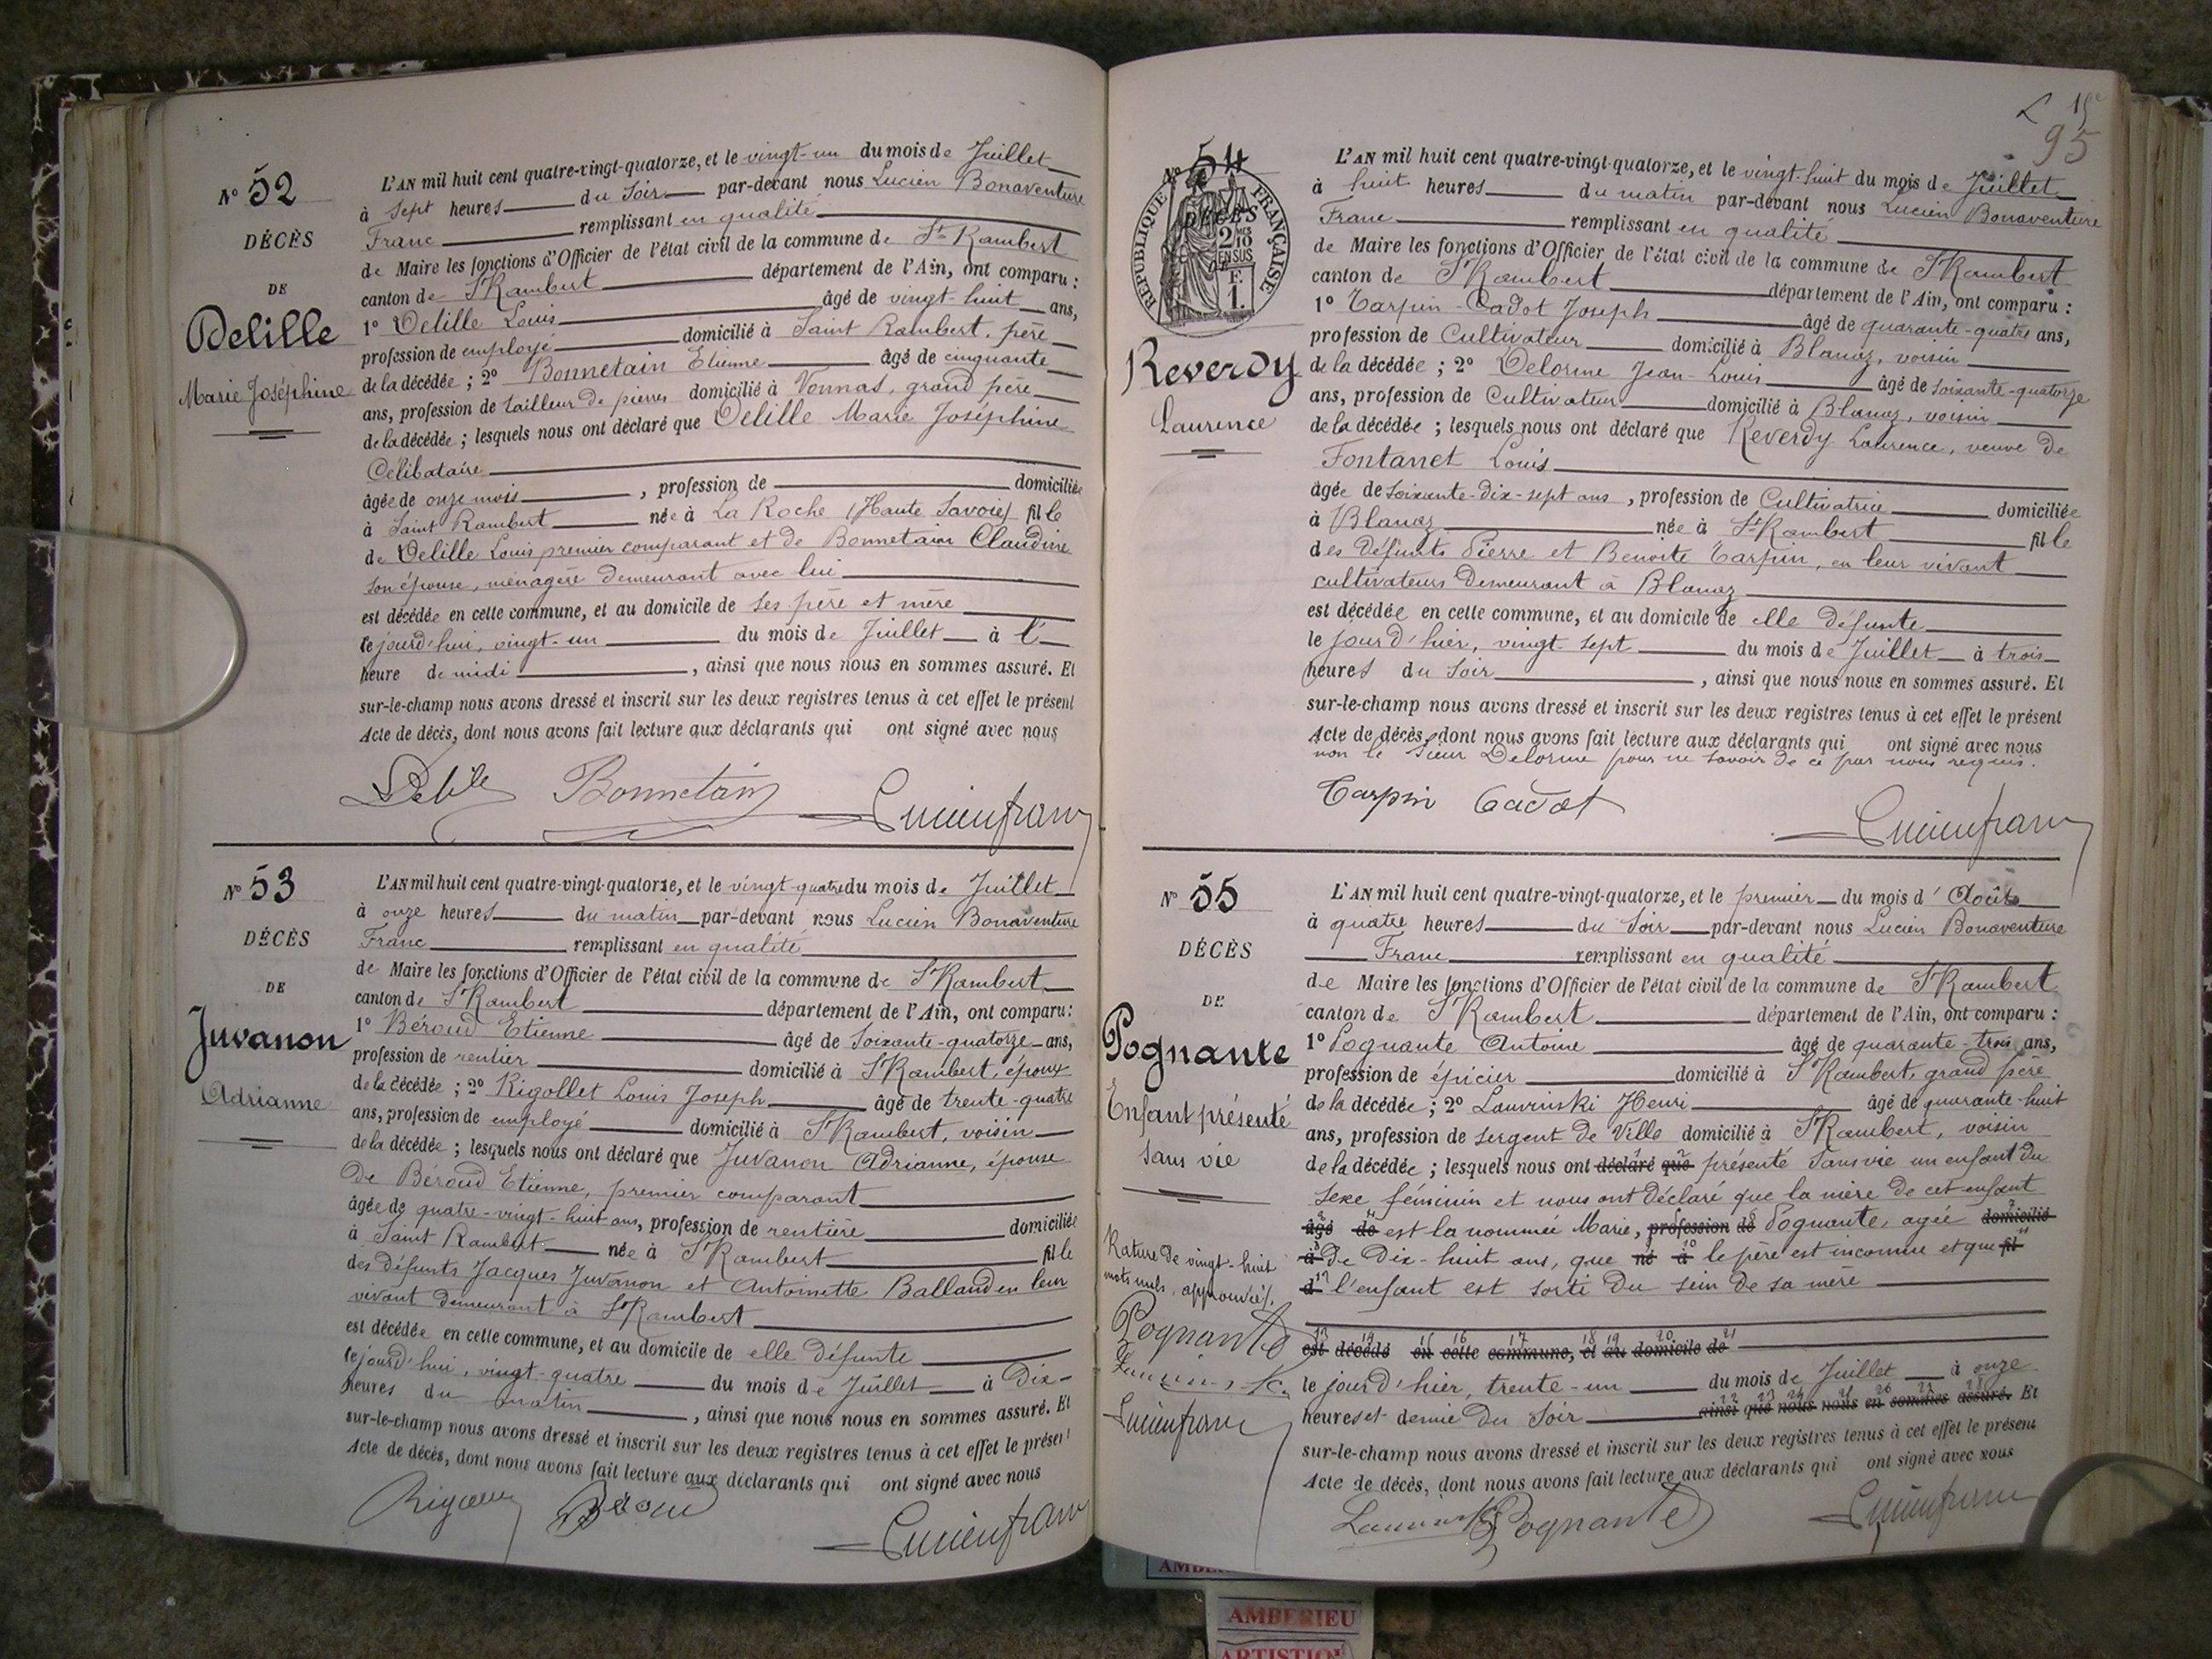 N° 52
DÉCÈS
DE
Delille
Marie Joséphine
L'AN mil huit cent quatre-vingt-quatorze, et le vingt-un du mois de Juillet
à sept heures du soir par-devant nous Lucien Bonaventure
Franc remplissant en qualité
de Maire les fonctions d'Officier de l'état civil de la commune de St Rambert
canton de St Rambert département de l'Ain, ont comparu :
1° Delille Louis âgé de vingt-huit ans,
profession de employé domicilié à Saint Rambert, père
de la décédée ; 2° Bonnetain Etienne âgé de cinquante
ans, profession de tailleur de pierres domicilié à Vonnas, grand père
de la décédée ; lesquels nous ont déclaré que Delille Marie Joséphine
Célibataire
âgée de onze mois, profession de domiciliée
à Saint Rambert née à La Roche (Haute Savoie) fille
de Delille Louis premier comparant et de Bonnetain Claudine
son épouse, ménagère demeurant avec lui
est décédée en cette commune, et au domicile de ses père et mère
le jourd'hui, vingt-un du mois de Juillet à l'
heure de midi, ainsi que nous nous en sommes assuré. Et
sur-le-champ nous avons dressé et inscrit sur les deux registres tenus à cet effet le présent
Acte de décès, dont nous avons fait lecture aux déclarants qui ont signé avec nous
Delille Bonnetain Lucien franc
N° 53
DÉCÈS
DE
Juvanon
Adrianne
L'AN mil huit cent quatre-vingt-quatorze, et le vingt-quatre du mois de Juillet
à onze heures du matin par-devant nous Lucien Bonaventure
Franc remplissant en qualité
de Maire les fonctions d'Officier de l'état civil de la commune de St Rambert
canton de St Rambert département de l'Ain, ont comparu :
1° Béroud Etienne âgé de soixante-quatorze ans,
profession de rentier domicilié à St Rambert, époux
de la décédée ; 2° Rigollet Louis Joseph âgé de trente-quatre
ans, profession de employé domicilié à St Rambert, voisin
de la décédée ; lesquels nous ont déclaré que Juvanon Adrianne, épouse
de Béroud Etienne, premier comparant
âgée de quatre-vingt-huit ans, profession de rentière domiciliée
à Saint Rambert née à St Rambert fille
des défunts Jacques Juvanon et Antoinette Balland en leur
vivant demeurant à St Rambert
est décédée en cette commune, et au domicile de elle défunte
le jourd'hui, vingt-quatre du mois de Juillet à dix
heures du matin, ainsi que nous nous en sommes assuré. Et
sur-le-champ nous avons dressé et inscrit sur les deux registres tenus à cet effet le présent
Acte de décès, dont nous avons fait lecture aux déclarants qui ont signé avec nous
Béroud Lucien franc
15e
95
N° 54
RÉPUBLIQUE FRANÇAISE
DÉCÈS
2/10 EN SUS
DE
F.
1.
Reverdy
Laurence
L'AN mil huit cent quatre-vingt-quatorze, et le vingt-huit du mois de Juillet
à huit heures du matin par-devant nous Lucien Bonaventure
Franc remplissant en qualité
de Maire les fonctions d'Officier de l'état civil de la commune de St Rambert
canton de St Rambert département de l'Ain, ont comparu :
1° Tarpin-Cadot Joseph âgé de quarante-quatre ans,
profession de Cultivateur domicilié à Blanaz, voisin
de la décédée ; 2° Delorme Jean-Louis âgé de soixante-quatorze
ans, profession de Cultivateur domicilié à Blanaz, voisin
de la décédée ; lesquels nous ont déclaré que Reverdy Laurence, veuve de
Fontanet Louis
âgée de soixante-dix-sept ans, profession de Cultivatrice domiciliée
à Blanaz née à St Rambert fille
des défunts Pierre et Benoite Tarpin, en leur vivant
cultivateurs demeurant à Blanaz
est décédée en cette commune, et au domicile de elle défunte
le jourd'hier, vingt-sept du mois de Juillet à trois
heures du soir, ainsi que nous nous en sommes assuré. Et
sur-le-champ nous avons dressé et inscrit sur les deux registres tenus à cet effet le présent
Acte de décès, dont nous avons fait lecture aux déclarants qui ont signé avec nous
non le sieur Delorme pour ne savoir de ce par nous requis.
Tarpin Cadot Lucien franc
N° 55
DÉCÈS
DE
Pognante
Enfant présenté
sans vie
L'AN mil huit cent quatre-vingt-quatorze, et le premier du mois d'Août
à quatre heures du soir par-devant nous Lucien Bonaventure
Franc remplissant en qualité
de Maire les fonctions d'Officier de l'état civil de la commune de St Rambert
canton de St Rambert département de l'Ain, ont comparu :
1° Pognante Antoine âgé de quarante-trois ans,
profession de épicier domicilié à St Rambert, grand père
de la décédée ; 2° Lauvinski Henri âgé de quarante-huit
ans, profession de sergent de Ville domicilié à St Rambert, voisin
de la décédée ; lesquels nous ont déclaré que présenté sans vie un enfant du
sexe féminin et nous ont déclaré que la mère de cet enfant
âgé de est la nommée Marie, profession de Pognante, agée domicilié
à de dix-huit ans, que né à le père est inconnu et que fil
d l'enfant est sorti du sein de sa mère
est décédé en cette commune, et au domicile de
le jourd'hier, trente-un du mois de Juillet à onze
heures et demie du soir ainsi que nous nous en sommes assuré. Et
sur-le-champ nous avons dressé et inscrit sur les deux registres tenus à cet effet le présent
Acte de décès, dont nous avons fait lecture aux déclarants qui ont signé avec nous
Rature de vingt-huit
mots nuls, approuvées.
Pognante
Lucien franc
Pognante Lucien franc
AMBERIEU
ARTISTIQ